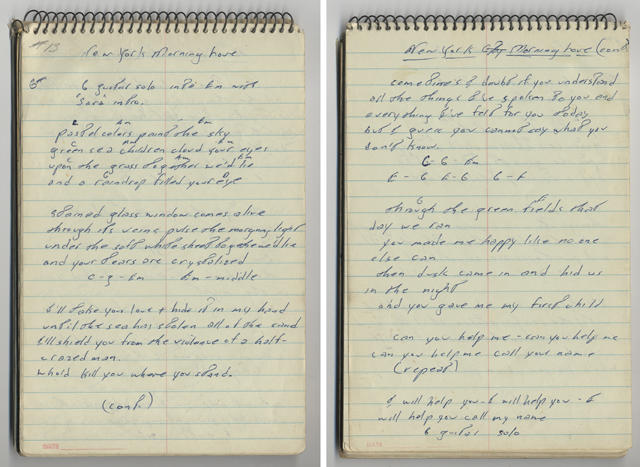 #13
New York Morning Love
G guitar solo into Em with
"Sara" intro.
C Am Em
pastel colors paint the sky
C Am Em
green sea children cloud your eyes
C Am Em
upon the grass together we'd lie
D
and a raindrop filled your eye
stained glass window comes alive
through its veins pulse the morning light
under the soft white sheet together we'd lie
and your tears are crystalized
C-G-Em Em-middle
I'll take your love & hide it in my hand
until the sea has stolen all of the sand
I'll shield you from the violence of a half-
crazed man.
who'd kill you where you stand.
(cont.)
New York Morning Love (cont)
sometimes I doubt if you understand
all the things I've spoken to you and
everything I've felt for you today
but I guess you cannot say what you
don't know.
C G Em
G
through the green fields that
day we ran
you made me happy like no one
else can
then dusk came in and hid us
in the night
and you gave me my first child
can you help me - can you help me
can you help me call your name
(repeat)
I will help you - I will help you - I
will help you call my name
G guitar solo
DATE
DATE